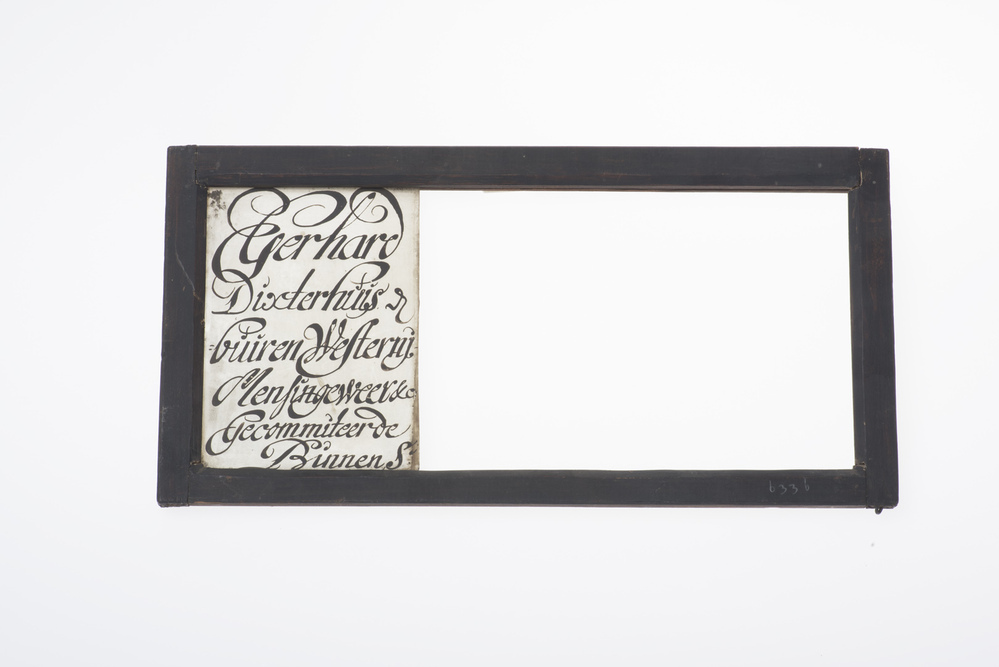 Gerhard
Dixterhuis
=buiren Westernij.
Mensingeweer &c
Gecommiteerde
Binnen S:
6336